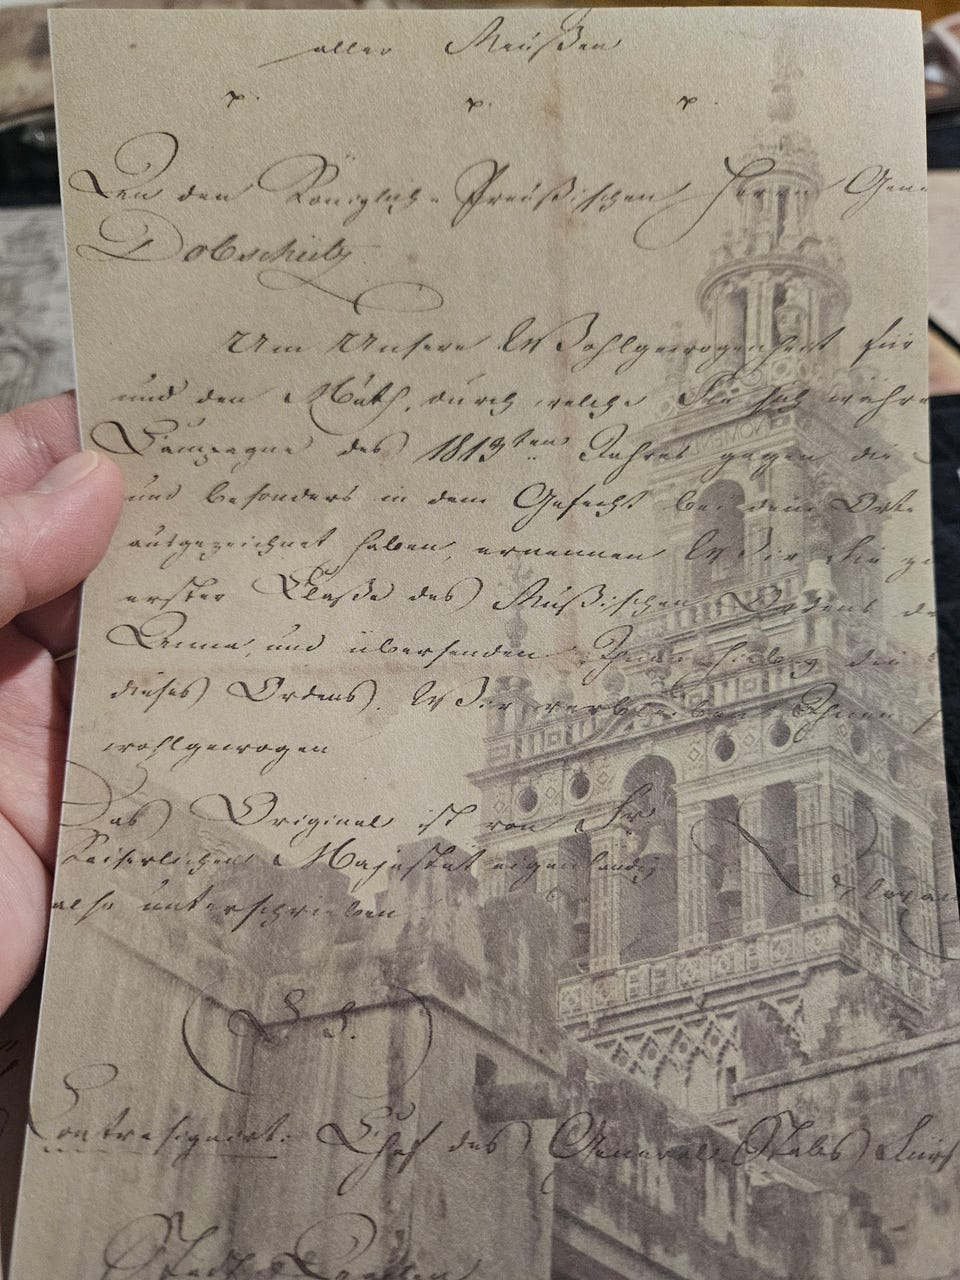 aller Reußen
p. p. p.
Den den Königlich-Preußischen Herrn Gen
Dobschütz
Um Unsere Wohlgewogenheit für
und den Muth, durch welche Sie sich währe
Campagne des 1813ten Jahres gegen die
und besonders in dem Gefecht bei dem Orte
ausgezeichnet haben, ernennen Wir Sie zu
erster Claße des Rußischen Ordens de
Anna, und übersenden Ihnen hiebey die
dieses Ordens. Wir verbleiben Ihnen
wohlgewogen
NOMEN
Das Original ist von Sr
Kaiserlichen Majestät eigenhändig
also unterschrieben
Alexan
(L. S.)
Contrasignirt. Chef des General Stabs Fürst